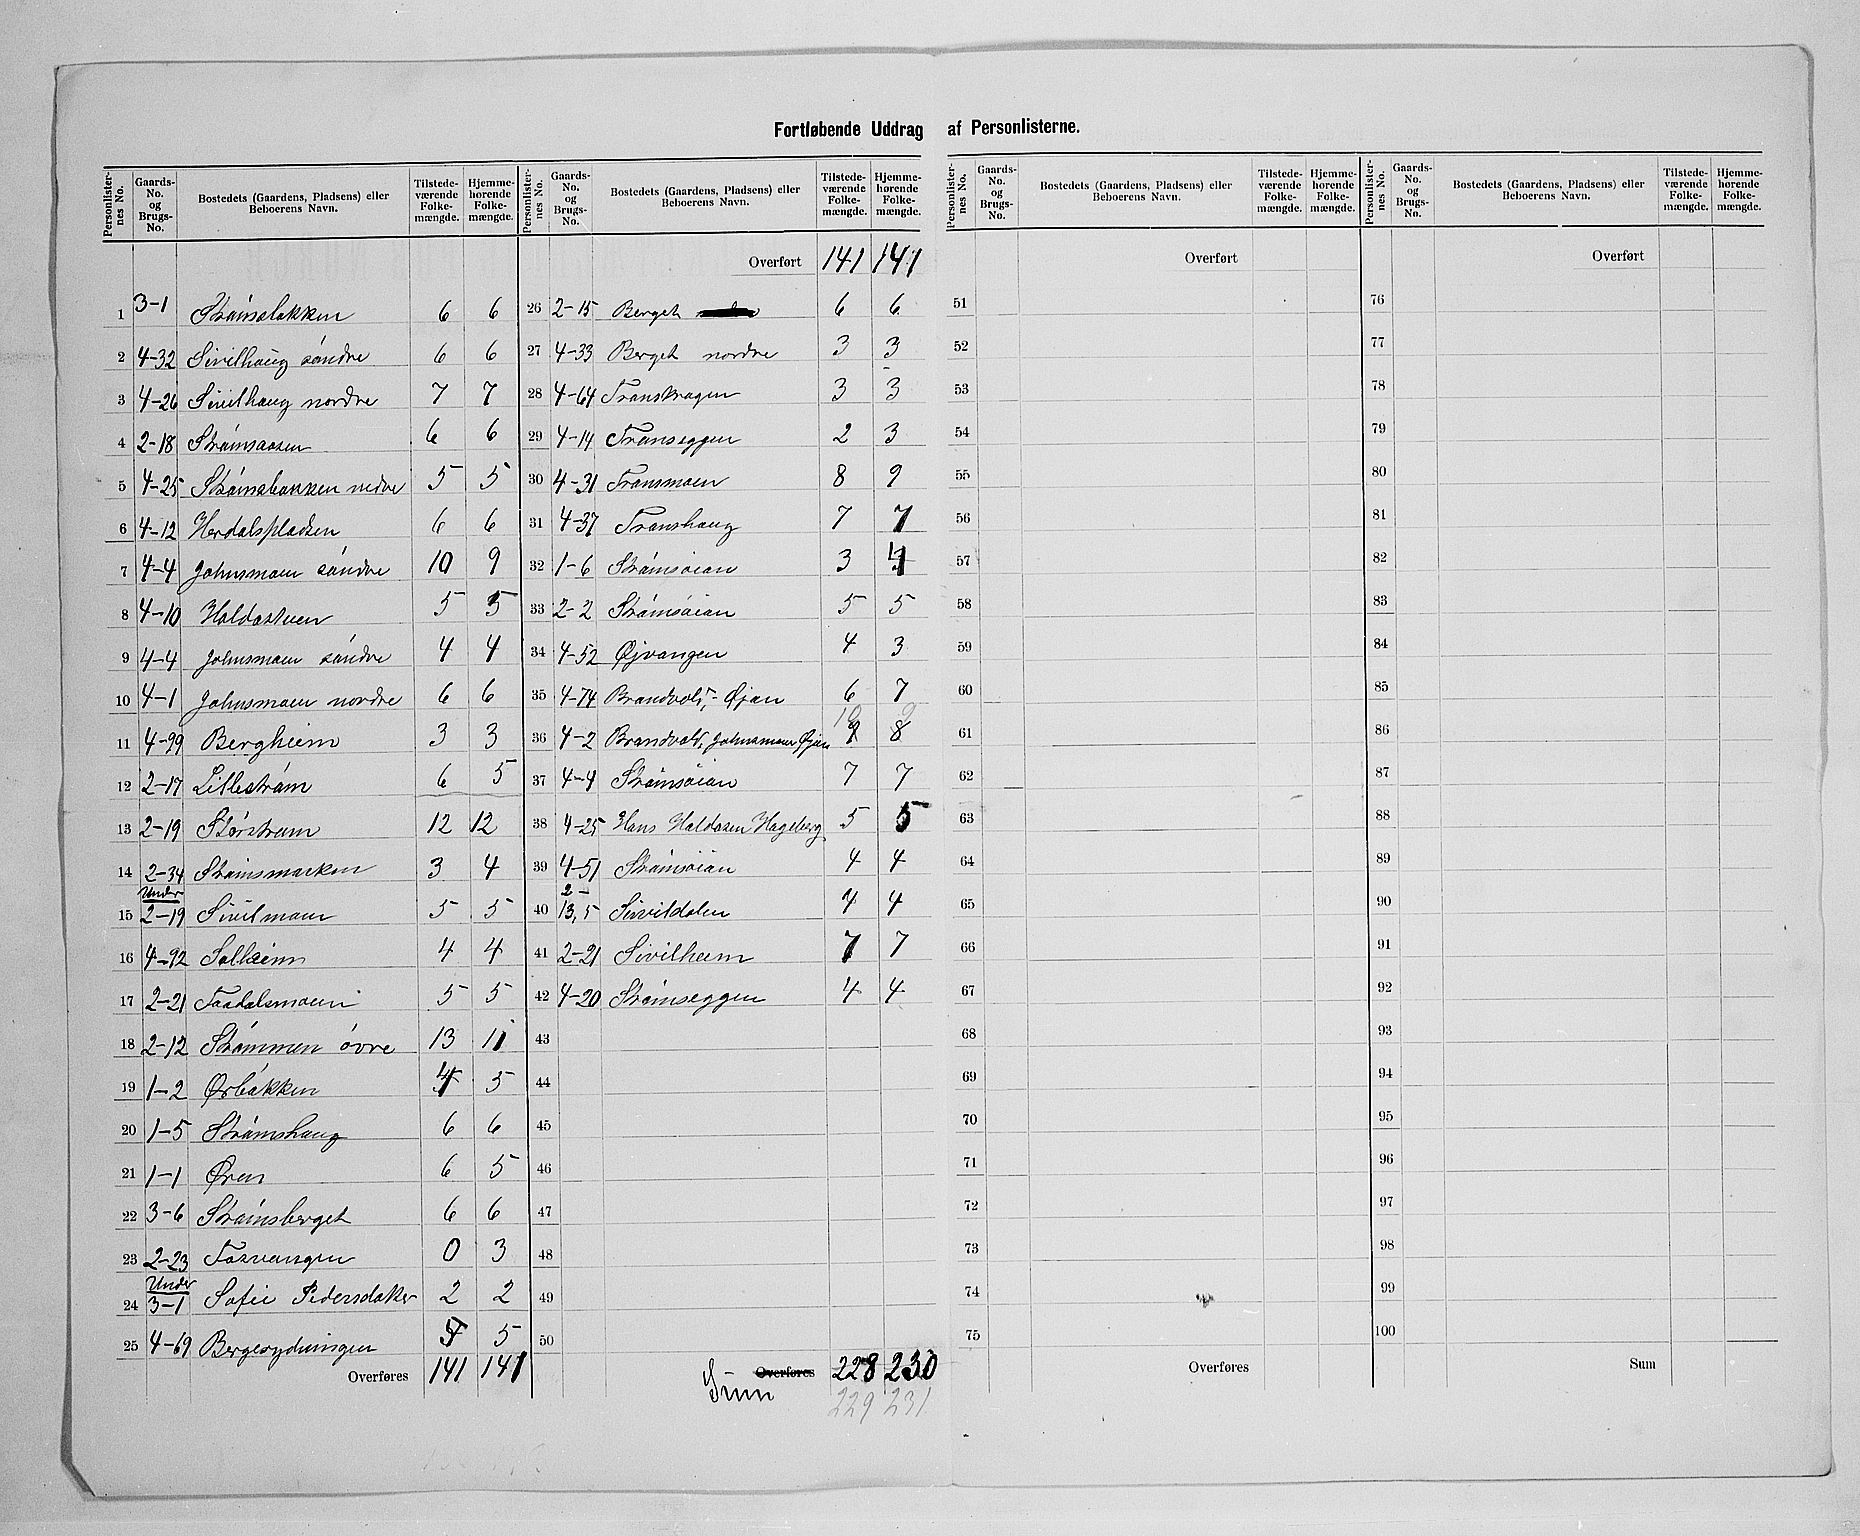 Fortløbende Uddrag af Personlisterne.
Personlisternes No. Gaards-No. og Brugs-No. Bostedets (Gaardens, Pladsens) eller Beboerens Navn. Tilstedeværende Folkemængde. Hjemmehørende Folkemængde.
1 3-1 Strömsbakken 6 6
2 4-32 Sivilhaug söndre 6 6
3 4-26 Sivilhaug nordre 7 7
4 2-18 Strömsaasen 6 6
5 4-25 Strömsbakken nedre 5 5
6 4-12 Herdalspladsen 6 6
7 4-4 Johnsmoen söndre 10 9
8 4-10 Haldostuen 5 5
9 4-4 Johnsmoen söndre 4 4
10 4-1 Johnsmoen nordre 6 6
11 4-99 Bergheim 3 3
12 2-17 Lilleström 6 5
13 2-19 Storstrøm 12 12
14 2-34 Strömsmarken 3 4
15 Under 2-19 Sivilmoen 5 5
16 4-92 Solheim 4 4
17 2-21 Taadalsmoen 5 5
18 2-12 Strömmen övre 13 11
19 1-2 Ørbäkken 4 5
20 1-5 Strömshaug 6 6
21 1-1 Øren 6 5
22 3-6 Strömsberget 6 6
23 2-23 Tosvangen 0 3
24 Under 3-1 Sofie Pedersdatter 2 2
25 4-69 Bergsrydningen 5 5
Overføres 141 141
Personlisternes No. Gaards-No. og Brugs-No. Bostedets (Gaardens, Pladsens) eller Beboerens Navn. Tilstedeværende Folkemængde. Hjemmehørende Folkemængde.
Overført 141 141
26 2-15 Berget 6 6
27 4-33 Berget nordre 3 3
28 4-64 Transkragen 3 3
29 4-14 Transeggen 2 3
30 4-31 Transmoen 8 9
31 4-37 Transhaug 7 7
32 1-6 Strömsöian 3
33 2-2 Strömsöian 5 5
34 4-52 Øjvangen 4 3
35 4-74 Brandvold, - Øjan 6 7
36 4-2 Brandvold, Johnsmoen Øjan 9 8
37 4-4 Strömsöian 7 7
38 4-25 Hans Haldosen Hageberg 5 5
39 4-51 Strömsöian 4 4
40 2-13,5 Sivildalen 4 4
41 2-21 Sivilheim 7 7
42 4-20 Strömseggen 4 4
43
44
45
46
47
48
49
50
Overføres
Sum 228 230
229 231
Personlisternes No. Gaards-No. og Brugs-No. Bostedets (Gaardens, Pladsens) eller Beboerens Navn. Tilstedeværende Folkemængde. Hjemmehørende Folkemængde.
Overført
51
52
53
54
55
56
57
58
59
60
61
62
63
64
65
66
67
68
69
70
71
72
73
74
75
Overføres
Personlisternes No. Gaards-No. og Brugs-No. Bostedets (Gaardens, Pladsens) eller Beboerens Navn. Tilstedeværende Folkemængde. Hjemmehørende Folkemængde.
Overført
76
77
78
79
80
81
82
83
84
85
86
87
88
89
90
91
92
93
94
95
96
97
98
99
100
Sum